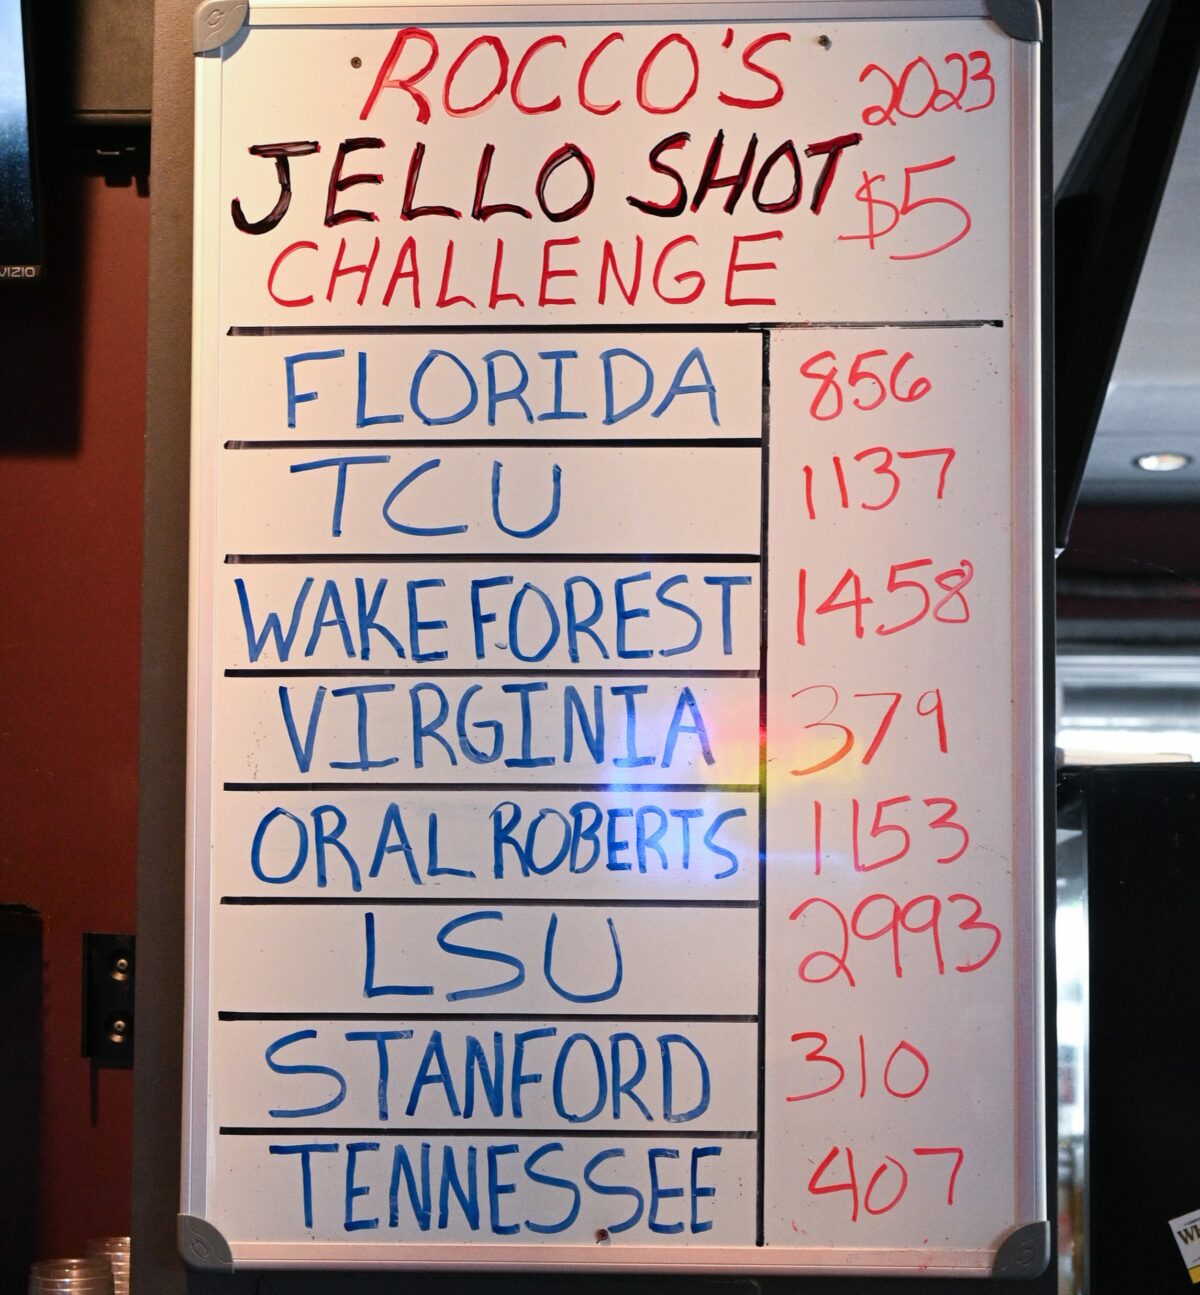 ROCCO'S 2023
JELLO SHOT $5
CHALLENGE
FLORIDA 856
TCU 1137
WAKE FOREST 1458
VIRGINIA 379
ORAL ROBERTS 1153
LSU 2993
STANFORD 310
TENNESSEE 407
VIZIO